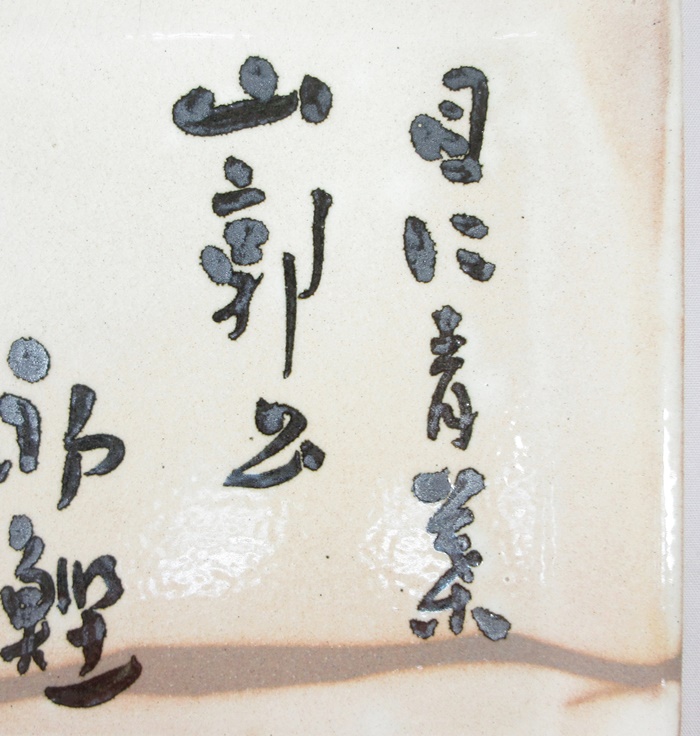 目に青葉
山郭公
初鰹